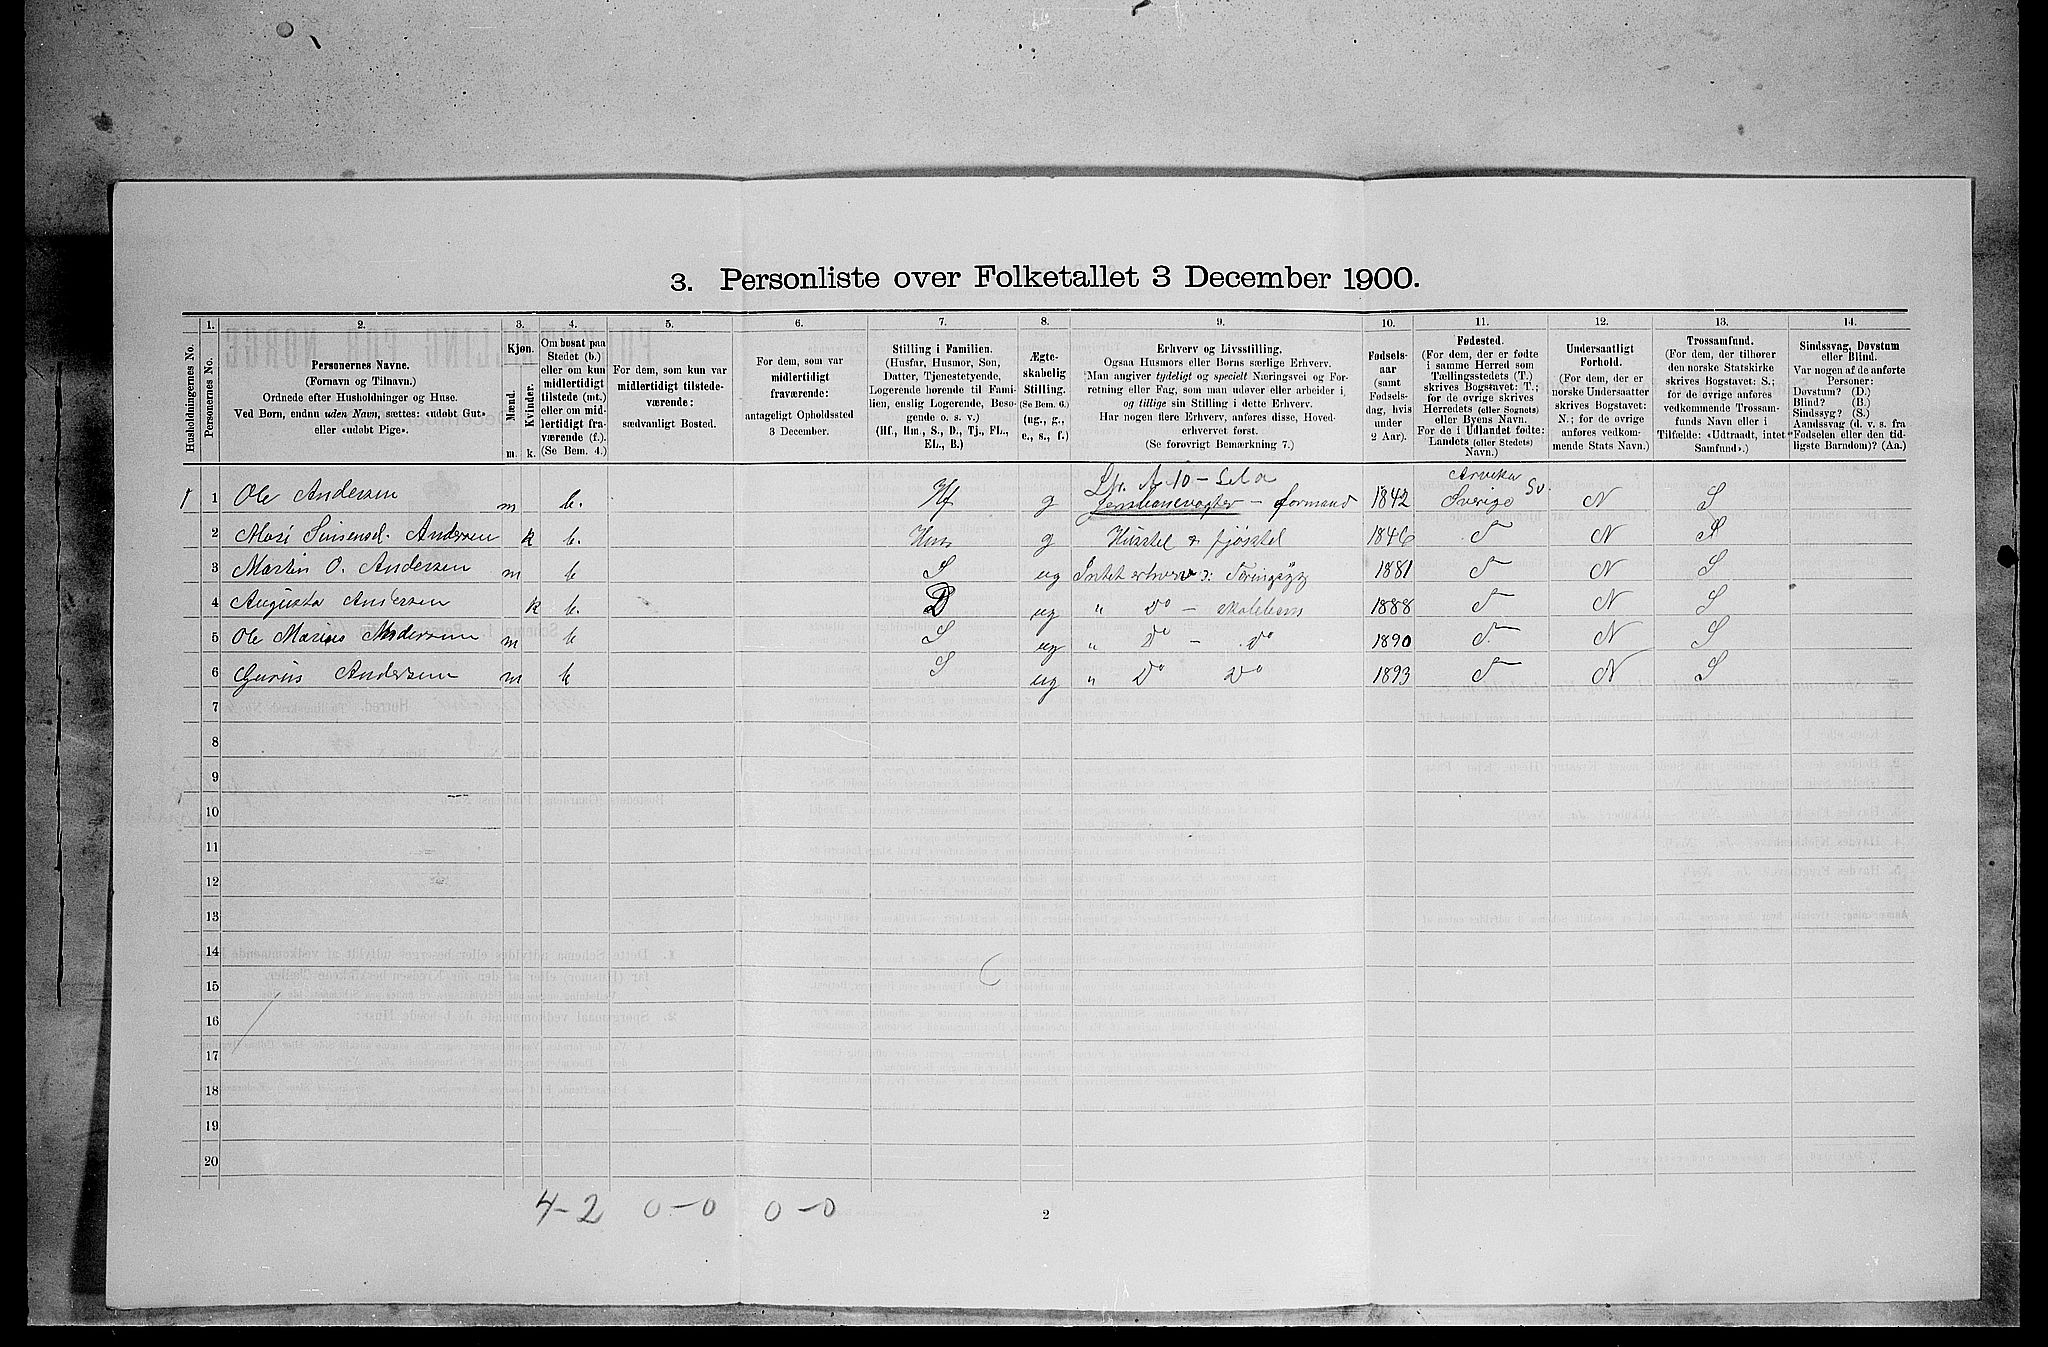 3. Personliste over Folketallet 3 December 1900.
Husholdningernes No.
1.
Personernes No.
2.
Personernes Navne.
(Fornavn og Tilnavn.)
Ordnede efter Husholdninger og Huse.
Ved Børn, endnu uden Navn, sættes: «udøbt Gut»
eller «udøbt Pige».
3.
Kjøn.
Mænd.
Kvinder.
m. k.
4.
Om bosat paa
Stedet (b.)
eller om kun
midlertidigt
tilstede (mt.)
eller om mid-
lertidigt fra-
værende (f.).
(Se Bem. 4.)
5.
For dem, som kun var
midlertidigt tilstede-
værende:
sædvanligt Bosted.
6.
For dem, som var
midlertidigt
fraværende:
antageligt Opholdssted
3 December.
7.
Stilling i Familien.
(Husfar, Husmor, Søn,
Datter, Tjenestetyende,
Logerende hørende til Fami-
lien, enslig Logerende, Besø-
gende o. s. v.)
(Hf., Hm., S., D., Tj., FL.,
EL., B.)
8.
Ægte-
skabelig
Stilling.
(Se Bem. 6.)
(ug., g.,
e., s., f.)
9.
Erhverv og Livsstilling.
Ogsaa Husmors eller Børns særlige Erhverv.
Man angiver tydeligt og specielt Næringsvei og For-
retning eller Fag, som man udøver eller arbeider i,
og tillige sin Stilling i dette Erhverv.
Har nogen flere Erhverv, anføres disse, Hoved-
erhvervet først.
(Se forøvrigt Bemærkning 7.)
10.
Fødsels-
aar
(samt
Fødsels-
dag, hvis
under
2 Aar).
11.
Fødested.
(For dem, der er fødte
i samme Herred som
Tællingsstedets (T.)
skrives Bogstavet: T.;
for de øvrige skrives
Herredets (eller Sognets)
eller Byens Navn.
For de i Udlandet fødte:
Landets (eller Stedets)
Navn.)
12.
Undersaatligt
Forhold.
(For dem, der er
norske Undersaatter
skrives Bogstavet:
N.; for de øvrige
anføres vedkom-
mende Stats Navn.)
13.
Trossamfund.
(For dem, der tilhører
den norske Statskirke
skrives Bogstavet: S.;
for de øvrige anføres
vedkommende Trossam-
funds Navn eller i
Tilfælde: «Udtraadt, intet
Samfund».)
14.
Sindssvag, Døvstum
eller Blind.
Var nogen af de anførte
Personer:
Døvstum? (D.)
Blind? (B.)
Sindssyg? (S.)
Aandssvag (d. v. s. fra
Fødselen eller den tid-
ligste Barndom)? (Aa.)
Arvika
1 1 Ole Andersen m b. Hf g formand 1842 Sverige Sv. N S
2 Andersen k b. Hm g Husstel & fjøsstel 1846 T N S
3 Martin O. Andersen m b S ug Intet erhverv 1881 T N S
4 Augusta Andersen k b. D ug " do - skolebarn 1888 T N S
5 Ole Marius Andersen m b S ug " do - do 1890 T N S
6 Andersen m b S ug " do do 1893 T N S
7
8
9
10
11
12
13
14
15
16
17
18
19
20
4-2 0-0 0-0
2